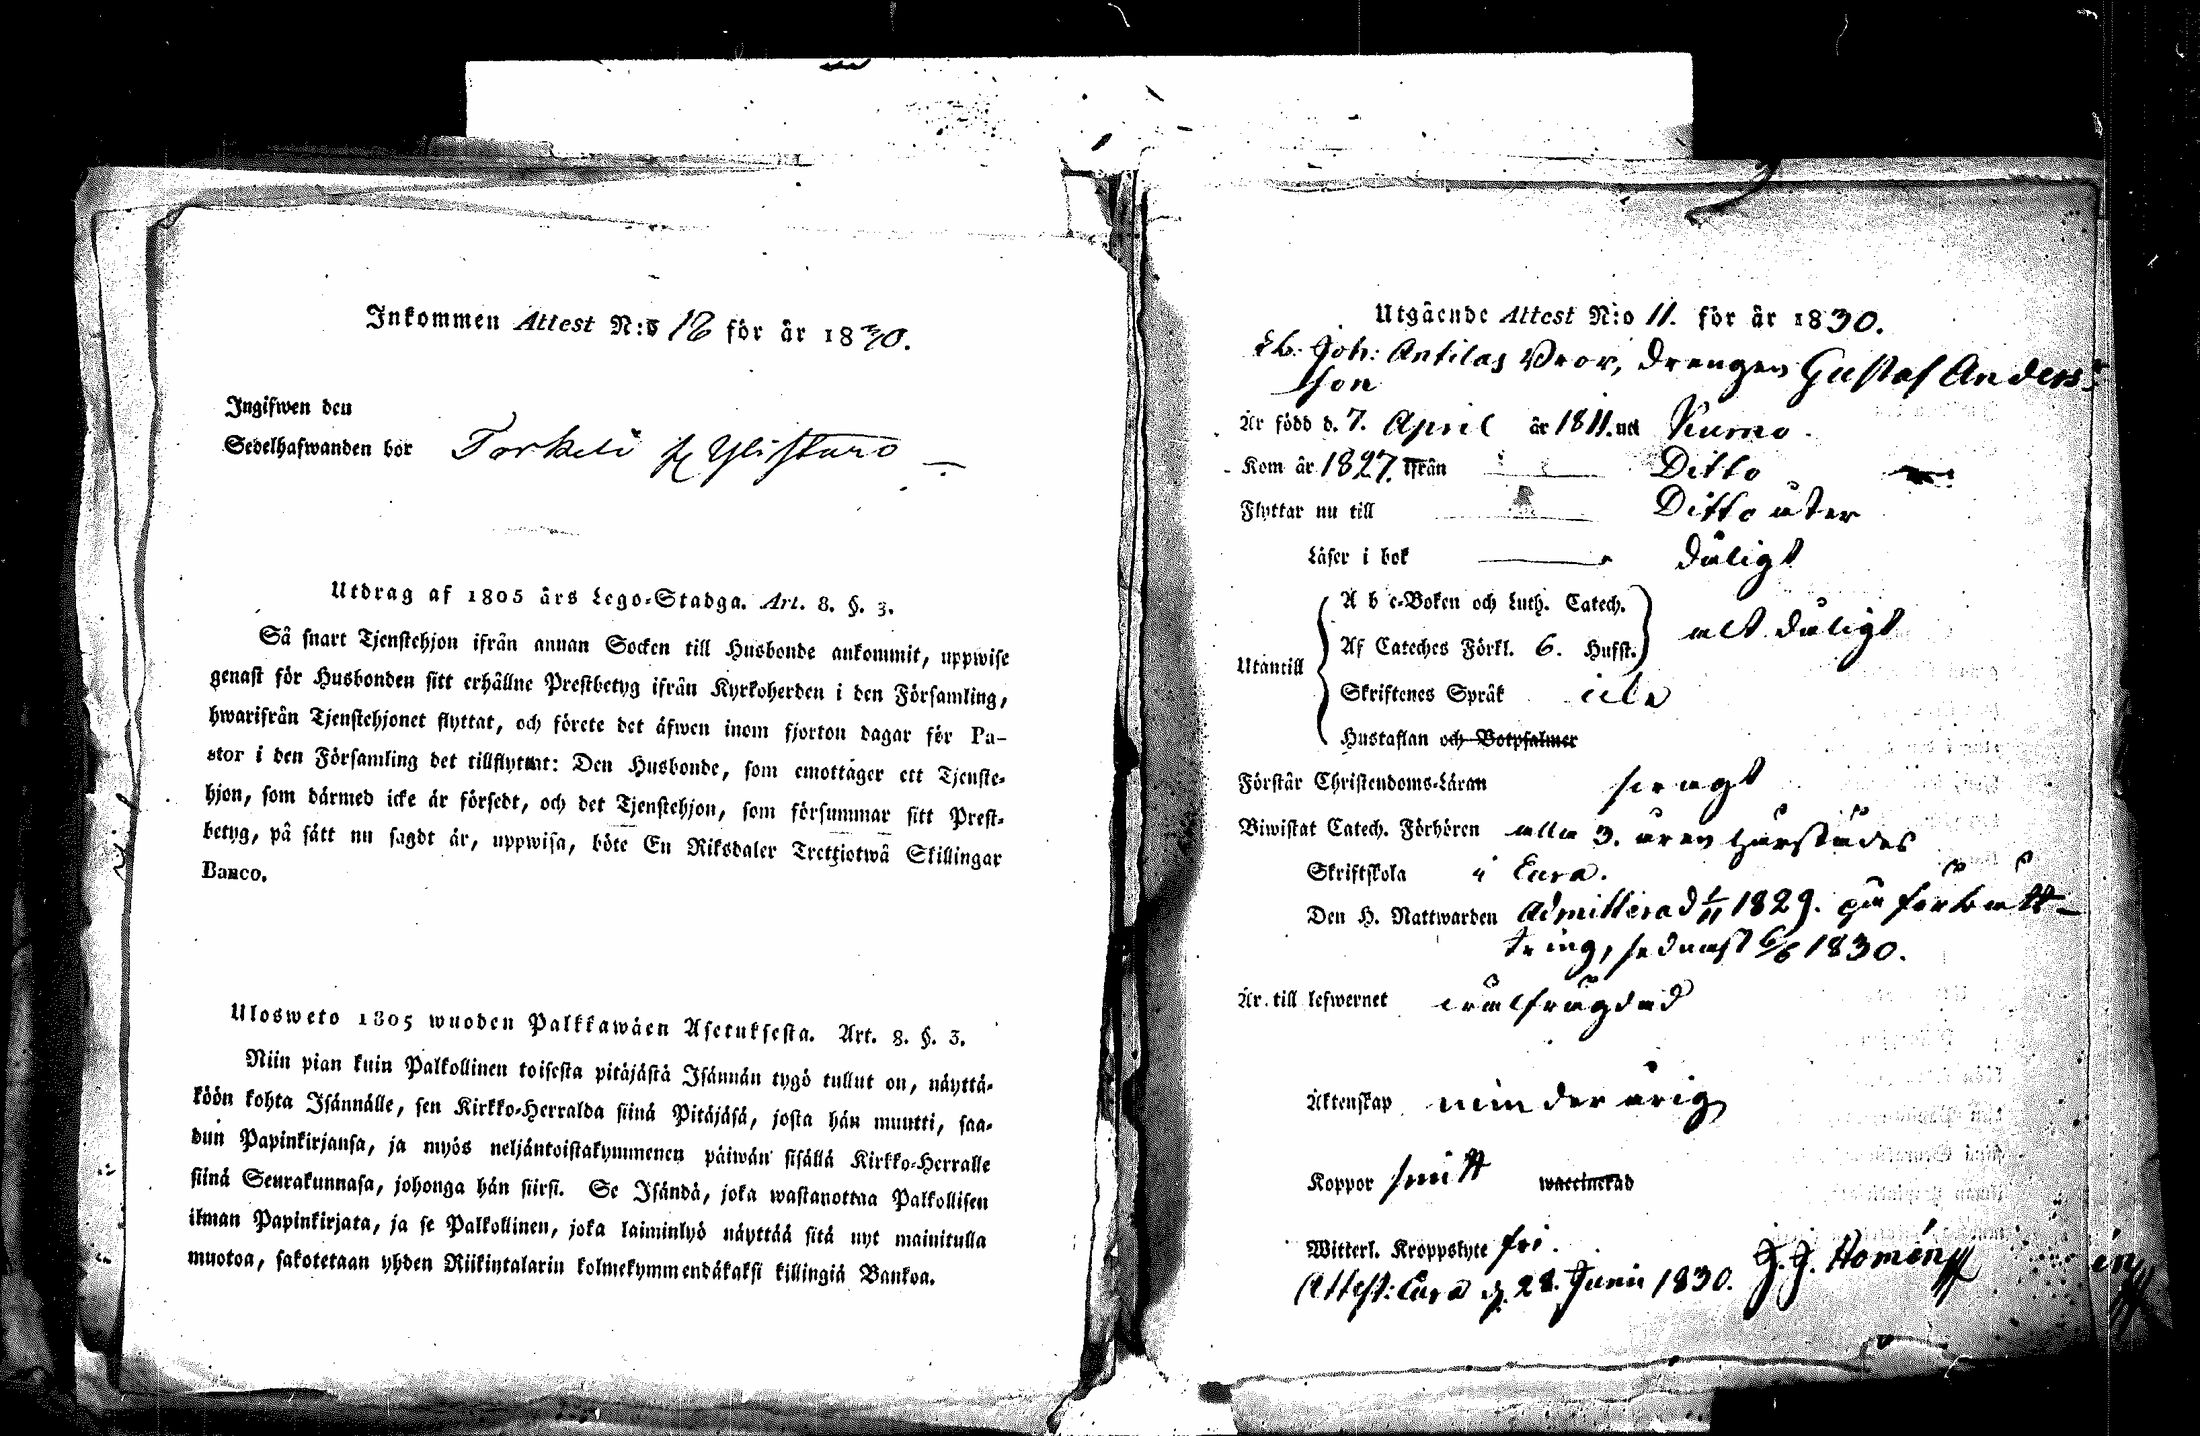 Inkommen Attest N:o 18 för år 1830.
Ingifwen den
Sedelhafwanden bor Torkeli Ylistaro
Utdrag af 1805 års Lego-Stadga. Art. 8. §. 3.
Så snart Tjenstehjon ifrån annan Socken till Husbonde ankommit, uppwise
genast för Husbonden sitt erhållne Prestbetyg ifrån Kyrkoherden i den Församling,
hwarifrån Tjenstehjonet flyttat, och förete det äfwen inom fjorton dagar för Pa-
stor i den Församling det tillflyttat: Den Husbonde, som emottager ett Tjenste-
hjon, som därmed icke är försedt, och det Tjenstehjon, som försummar sitt Prest-
betyg, på sätt nu sagdt är, uppwisa, böte En Riksdaler Trettiotwå Skillingar
Banco.
Ulosweto 1805 wuoden Palkkawäen Asetuksesta. Art. 8. §. 3.
Niin pian kuin Palkollinen toisesta pitäjästä Isännän tygö tullut on, näyttä-
köön kohta Isännälle, sen Kirkko-Herralda siinä Pitäjäsä, josta hän muutti, saa-
dun Papinkirjansa, ja myös neljäntoistakymmenen päiwän sisällä Kirkko-Herralle
siinä Seurakunnasa, johonga hän siirsi. Se Isändä, joka wastanottaa Palkollisen
ilman Papinkirjata, ja se Palkollinen, joka laiminlyö näyttää sitä nyt mainitulla
muotoa, sakotetaan yhden Riikintalarin kolmekymmendäkaksi killingiä Bankoa.
Utgående Attest N:o 11. för år 1830.
Joh: Antilas Bror, Drengen Gustaf Anders-
son
Är född d. 7. April år 1811. uti Kumo.
Kom år 1827. ifrån Ditto
Flyttar nu till Ditto åter
Läser i bok dåligt
Utantill
A b c-Boken och Luth. Catech.
Af Cateches Förkl. 6. Hufst. alt dåligt
Skriftenes Språk icke
Hustaflan och Botpsalmer
Förstår Christendoms-Läran swagt
Biwistat Catech. Förhören alla 3. åren härstädes
Skriftskola i Eura.
Den H. Nattwarden Admitterad 1/11 1829. på förbätt-
tring, sednast 6/6 1830.
Är till lefwernet oielfrägdad
Äktenskap minderårig
Koppor haft waccinerad
Witterl. Kroppslyte fri.
Attest: Eura d. 28. Junii 1830. J. J. Homén